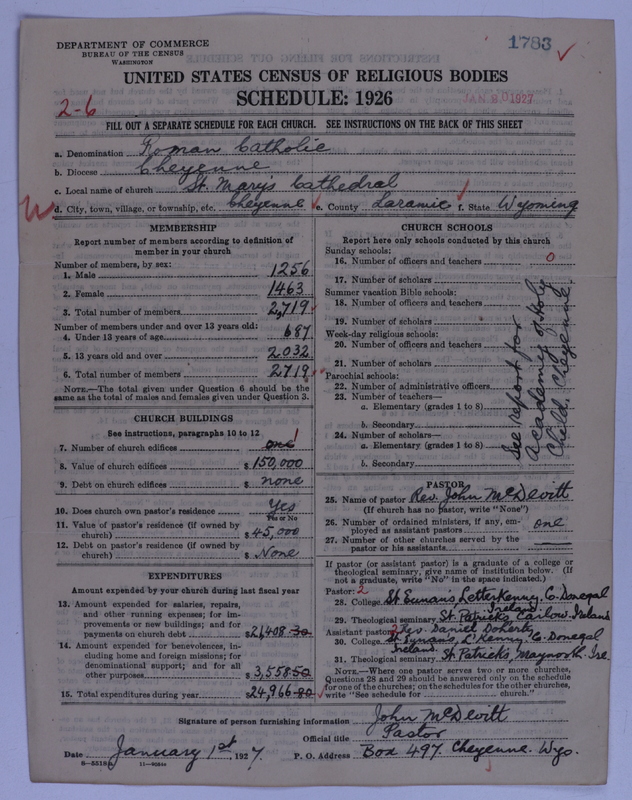 DEPARTMENT OF COMMERCE
BUREAU OF THE CENSUS
WASHINGTON
1783
UNITED STATES CENSUS OF RELIGIOUS BODIES
SCHEDULE: 1926
JAN 20 1927
2-6
FILL OUT A SEPARATE SCHEDULE FOR EACH CHURCH. SEE INSTRUCTIONS ON THE BACK OF THIS SHEET
a. Denomination Roman Catholic
b. Diocese Cheyenne
c. Local name of church St. Mary's Cathedral
d. City, town, village, or township, etc. Cheyenne e. County Laramie f. State Wyoming
MEMBERSHIP
Report number of members according to definition of
member in your church
Number of members, by sex:
1. Male 1256
2. Female 1463
3. Total number of members 2,719
Number of members under and over 13 years old:
4. Under 13 years of age 687
5. 13 years old and over 2032
6. Total number of members 2719
NOTE.—The total given under Question 6 should be the
same as the total of males and females given under Question 3.
CHURCH BUILDINGS
See instructions, paragraphs 10 to 12
7. Number of church edifices one 1
8. Value of church edifices $ 150,000
9. Debt on church edifices $ none
10. Does church own pastor's residence? Yes
Yes or No
11. Value of pastor's residence (if owned by
church) $ 45,000
12. Debt on pastor's residence (if owned by
church) $ None
EXPENDITURES
Amount expended by your church during last fiscal year
13. Amount expended for salaries, repairs,
and other running expenses; for im-
provements or new buildings; and for
payments on church debt $21,408.30
14. Amount expended for benevolences, in-
cluding home and foreign missions; for
denominational support; and for all
other purposes $ 3,558.50
15. Total expenditures during year $24,966.80
CHURCH SCHOOLS
Report here only schools conducted by this church
Sunday schools:
16. Number of officers and teachers 0
17. Number of scholars
Summer vacation Bible schools:
18. Number of officers and teachers
19. Number of scholars
Week-day religious schools:
20. Number of officers and teachers
21. Number of scholars
Parochial schools:
22. Number of administrative officers
23. Number of teachers—
a. Elementary (grades 1 to 8)
b. Secondary
24. Number of scholars—
a. Elementary (grades 1 to 8)
b. Secondary
See report for
Academy of Holy
Child, Cheyenne.
PASTOR
25. Name of pastor Rev. John McDevitt
(If church has no pastor, write "None")
26. Number of ordained ministers, if any, em-
ployed as assistant pastors one
27. Number of other churches served by the
pastor or his assistants
If pastor (or assistant pastor) is a graduate of a college or
theological seminary, give name of institution below. (If
not a graduate, write "No" in the space indicated.)
Pastor: 2
28. College St Eunans Letterkenny, Co Donegal
Ireland
29. Theological seminary St. Patricks, Carlow. Ireland
Assistant pastor: 2 Rev. Daniel Doherty
30. College St Eunans L'Kenny, Co Donegal
Ireland.
31. Theological seminary St Patricks, Maynooth. Ire.
NOTE.—Where one pastor serves two or more churches,
Questions 28 and 29 should be answered only on the schedule
for one of the churches; on the schedules for the other churches,
write "See schedule for church."
Signature of person furnishing information John McDevitt
Official title Pastor
Date January 1st, 1927. P. O. Address Box 497. Cheyenne. Wyo.